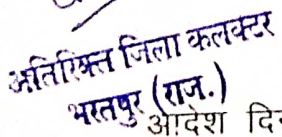 अतिरिक्त जिला कलक्टर
भरतपुर (राज.)
आदेश